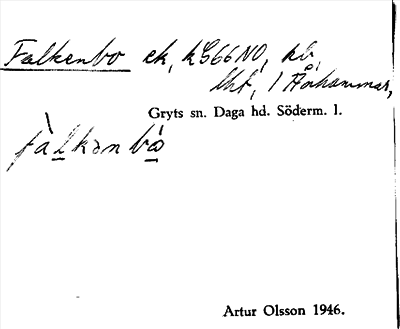 Falkenbo ek, kG66NO, kv,
lht, 1 Åkhammar,
Gryts sn. Daga hd. Söderm. l.
fàlkənbó
Artur Olsson 1946.